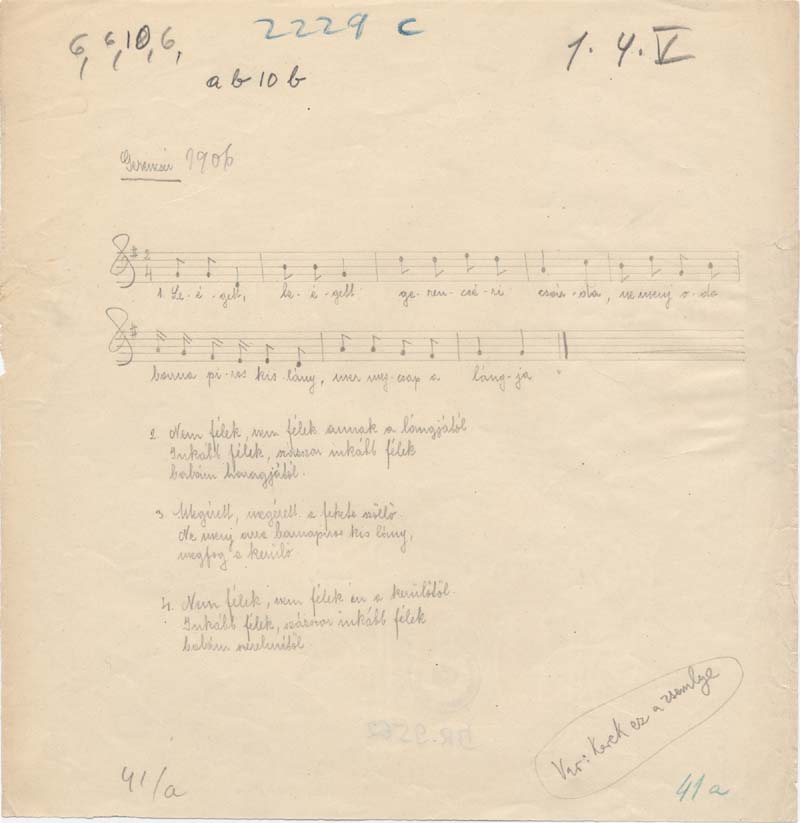 6, 6, 10, 6,
2229 c
1. 4. V
a b 10 b
1906
2
4
1. Le-é-gett, le-é-gett ge-ren-csé-ri csár-da, ne menj o-da
barna pi-ros kis lány, mer meg-csap a láng-ja
2. Nem félek, nem félek annak a lángjától
Inkább félek, százszor inkább félek
babám haragjától.
3. Megérett, megérett a fekete szöllö
Ne menj arra barnapiros kis lány,
megfog a kerülö
4. Nem félek, nem félek én a kerülötöl.
Inkább félek, százszor inkább félek
babám szerelmétöl
Var: Kerek ez a zsemlye
41/a
41 a